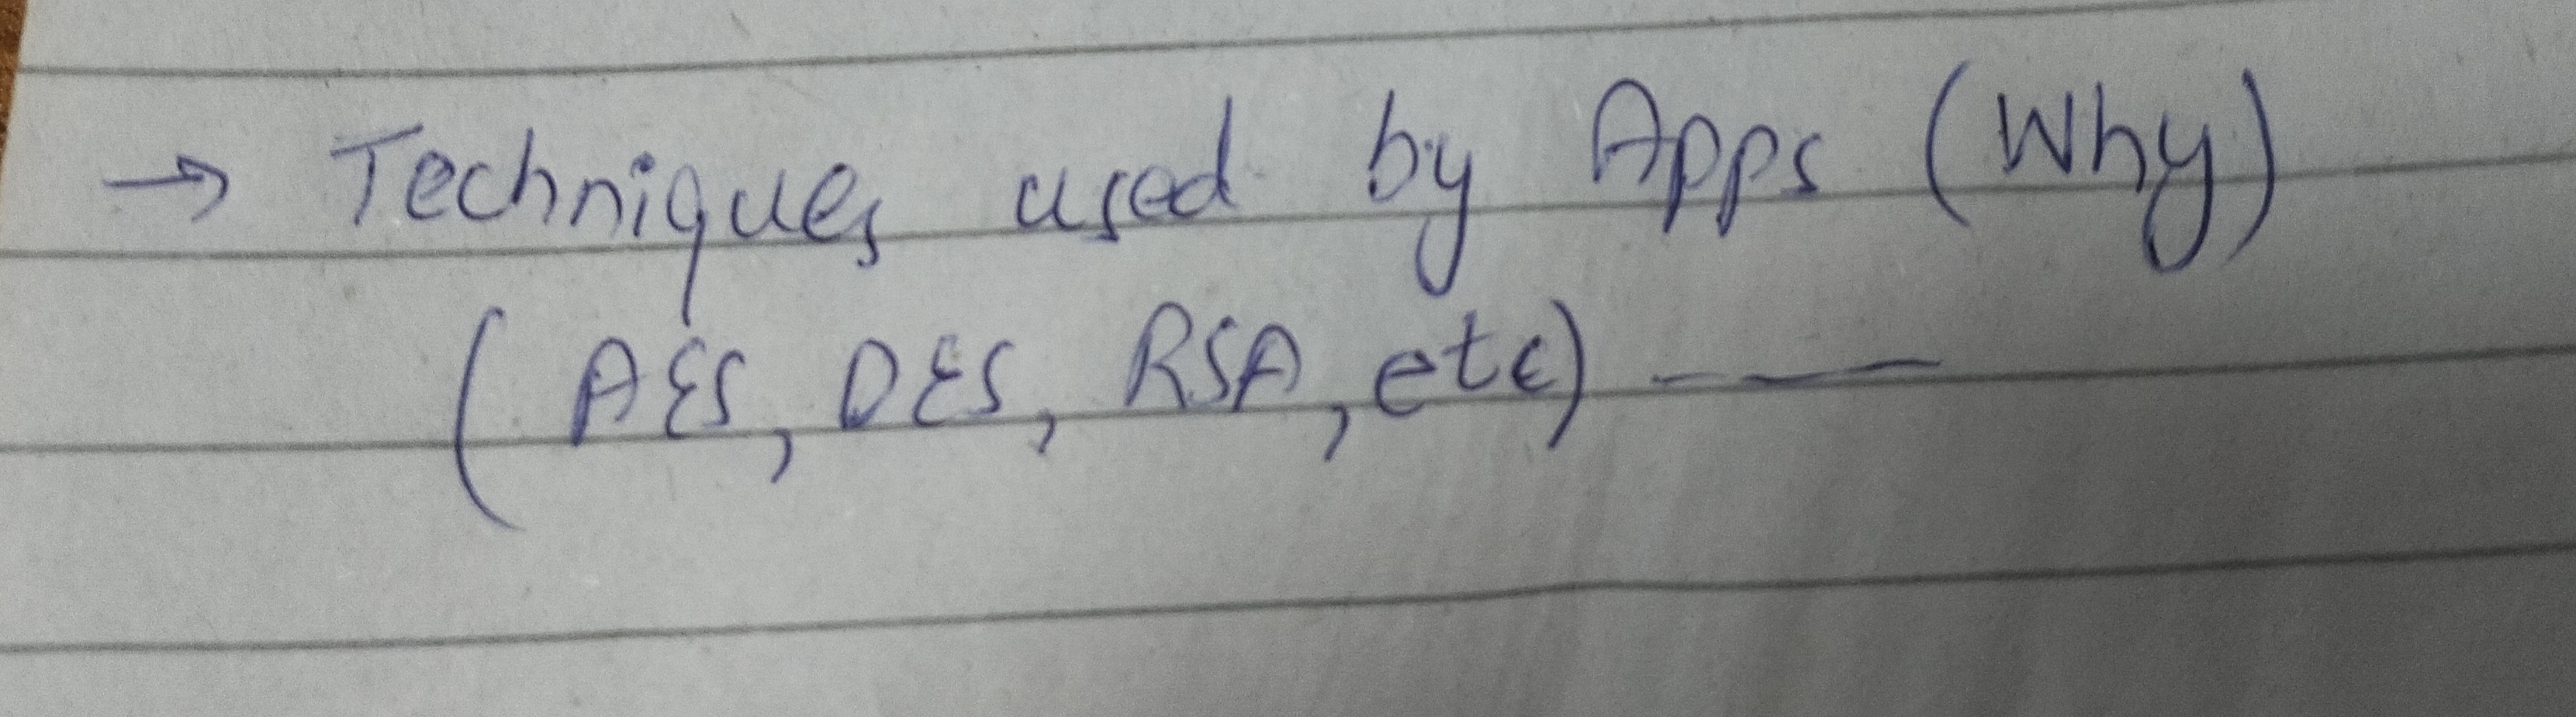 → Techniques used by Apps (Why)
(AES, DES, RSA, etc) - —